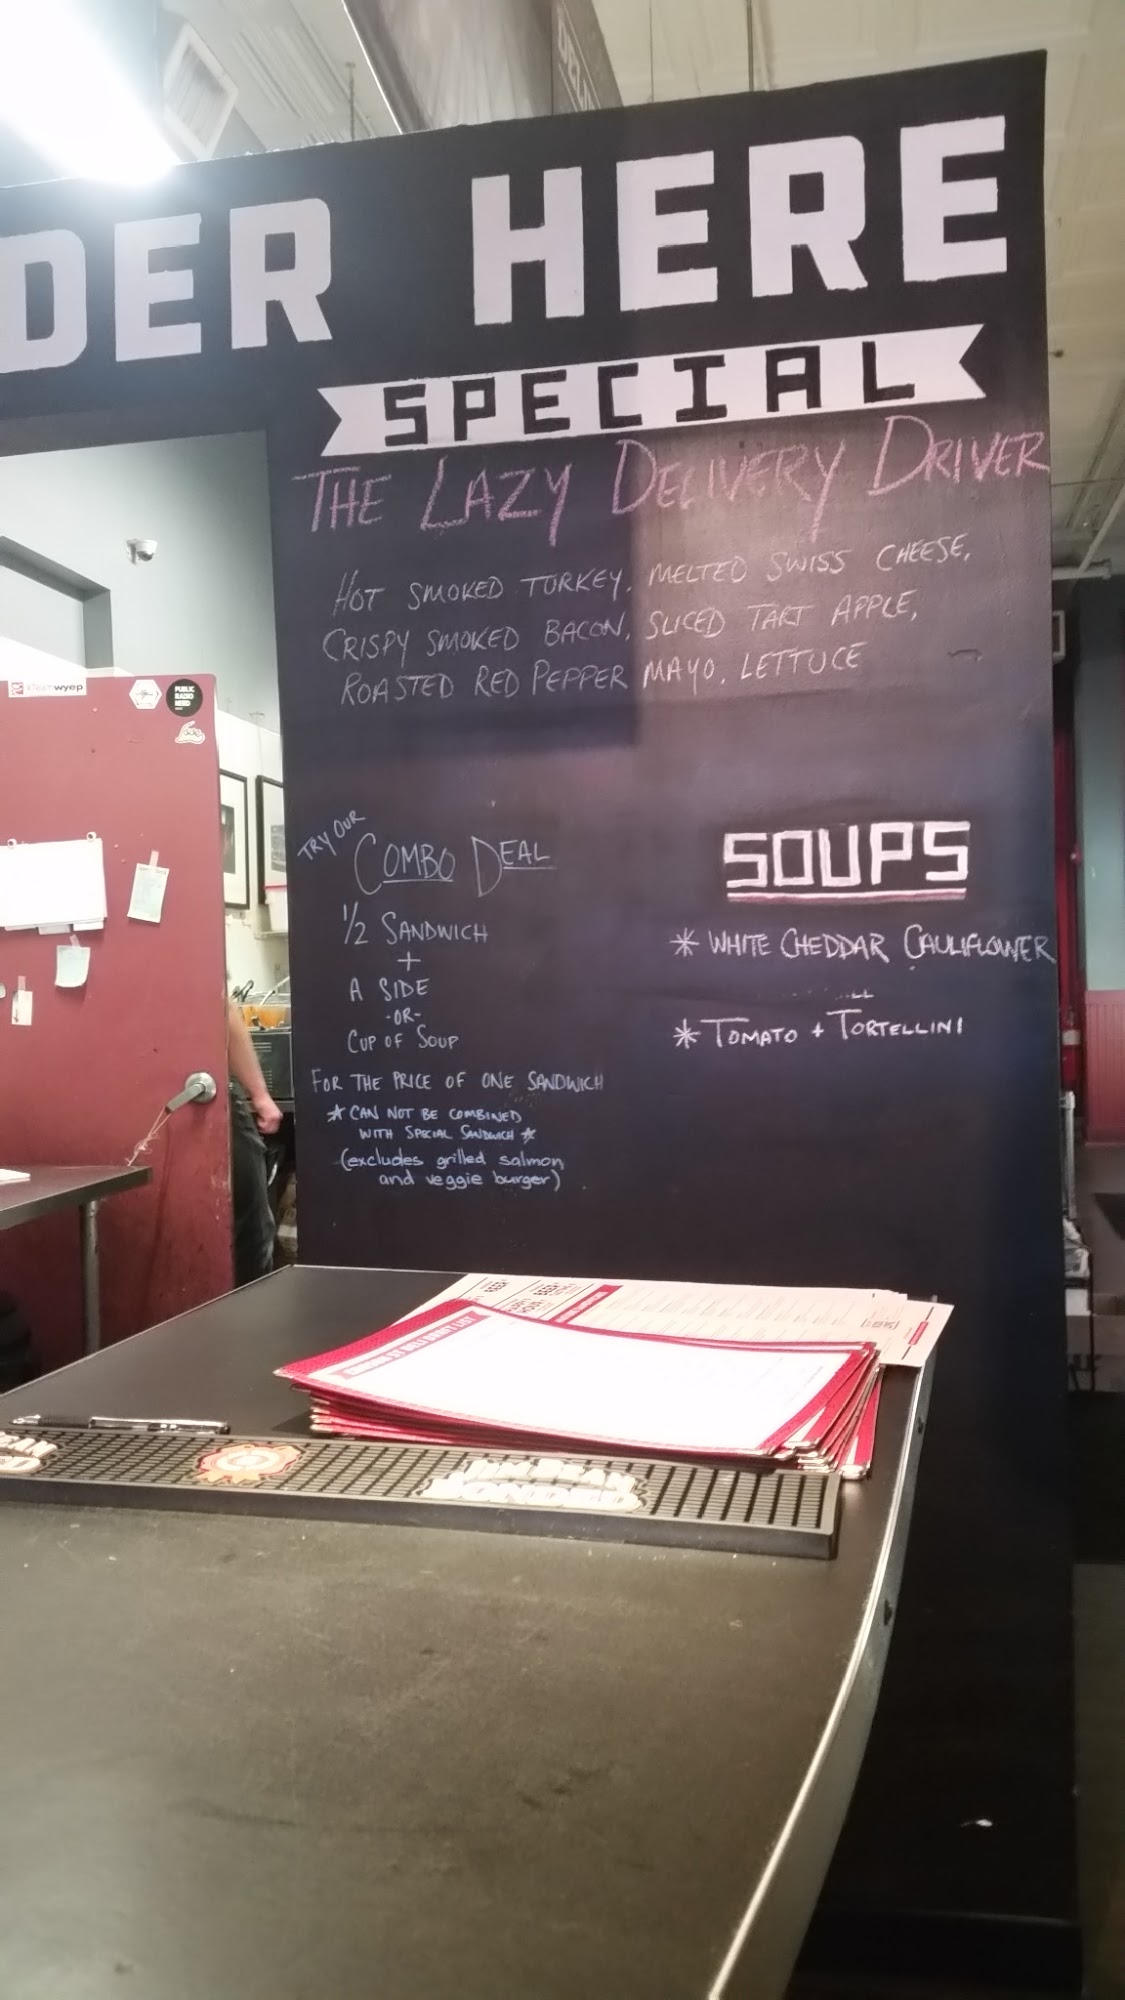 DER HERE
SPECIAL
THE LAZY DELIVERY DRIVER
HOT SMOKED TURKEY, MELTED SWISS CHEESE,
CRISPY SMOKED BACON, SLICED TART APPLE,
ROASTED RED PEPPER MAYO, LETTUCE
TRY OUR
COMBO DEAL
1/2 SANDWICH
+
A SIDE
-OR-
CUP OF SOUP
FOR THE PRICE OF ONE SANDWICH
* CAN NOT BE COMBINED
WITH SPECIAL SANDWICH *
(excludes grilled salmon
and veggie burger)
SOUPS
* WHITE CHEDDAR CAULIFLOWER
* TOMATO + TORTELLINI
wyep
PUBLIC
RADIO
NERD
JIM BEAM